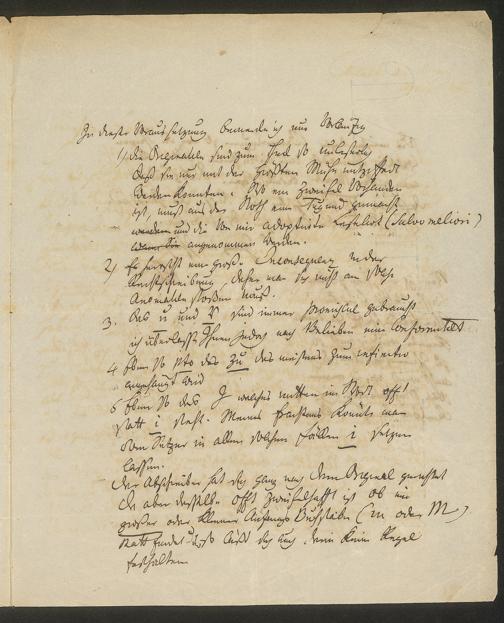 In dieser Voraussetzung bemerke ich nur Vorläufig
1) die Originalien sind zum Theil so unleserlich
daß sie nur mit der größten Mühe entziffert
werden konnten. Wo ein Zweifel vorhanden
ist, muß aus der Noth eine Tugend gemacht
werden und die von mir adoptirte Lesart (salvo meliori)
angenommen werden.
2) Es herrscht eine große Inconsequenz in der
Rechtschreibung, daher man sich nicht an solche
Anomalien stoßen muß.
3. das u und v sind immer promiscue gebraucht
ich überlasse Ihnen jedoch nach Belieben eine Conformität
4 Eben so das zu das meistens zum infinitiv
angehängt wird
5 Eben so das J welches mitten im Wort oft
statt i steht. Meines Erachtens könnte man
dem Setzer in allen solchen Fällen i setzen
lassen.
Der Abschreiber hat sich ganz nach dem Original gerichtet
da aber derselbe oft zweifelhaft ist ob ein
großer oder kleiner Anfangs Buchstabe (m oder M)
statt findet so läßt sich auch kein Regel
festhalten